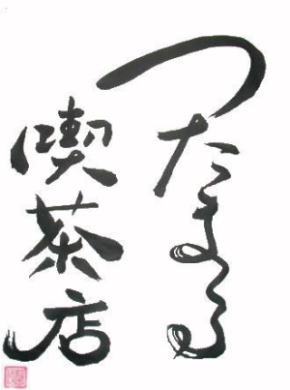 つたまる
喫茶店